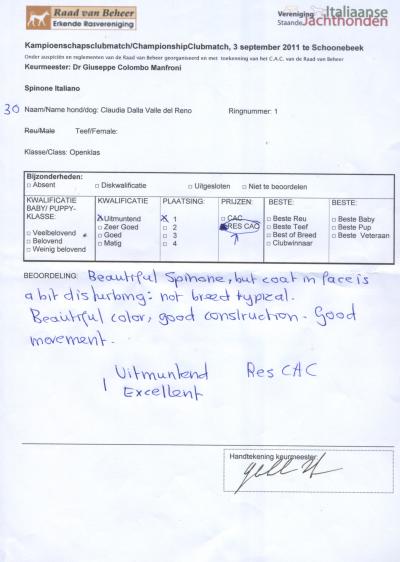 Raad van Beheer
Erkende Rasvereniging
Vereniging Italiaanse
Staande Jachthonden
Kampioenschapsclubmatch/ChampionshipClubmatch, 3 september 2011 te Schoonebeek
Onder auspiciën en reglementen van de Raad van Beheer georganiseerd en met toekenning van het C.A.C. van de Raad van Beheer
Keurmeester: Dr Giuseppe Colombo Manfroni
Spinone Italiano
30 Naam/Name hond/dog: Claudia Dalla Valle del Reno Ringnummer: 1
Reu/Male Teef/Female:
Klasse/Class: Openklas
Bijzonderheden:
□ Absent □ Diskwalificatie □ Uitgesloten □ Niet te beoordelen
KWALIFICATIE BABY/ PUPPY-KLASSE:
□ Veelbelovend
□ Belovend
□ Weinig belovend
KWALIFICATIE
X Uitmuntend
□ Zeer Goed
□ Goed
□ Matig
PLAATSING:
X 1
□ 2
□ 3
□ 4
PRIJZEN:
□ CAC
RES CAC
BESTE:
□ Beste Reu
□ Beste Teef
□ Best of Breed
□ Clubwinnaar
BESTE:
□ Beste Baby
□ Beste Pup
□ Beste Veteraan
BEOORDELING: Beautiful Spinone, but coat in face is
a bit disturbing: not breed typical.
Beautiful color, good construction. Good
movement.
Uitmuntend Res CAC
1 Excellent
Handtekening keurmeester: